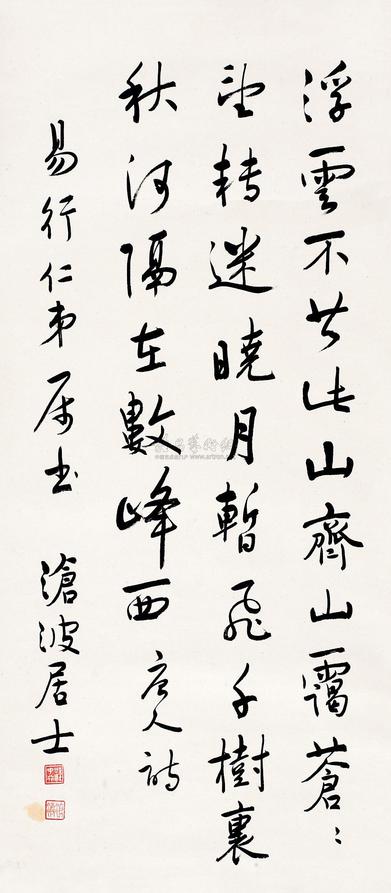 浮雲不共此山齊山靄蒼〻
望轉迷曉月暫飛千樹裏
秋河隔在數峰西 唐人詩
易行仁弟属书 滄波居士